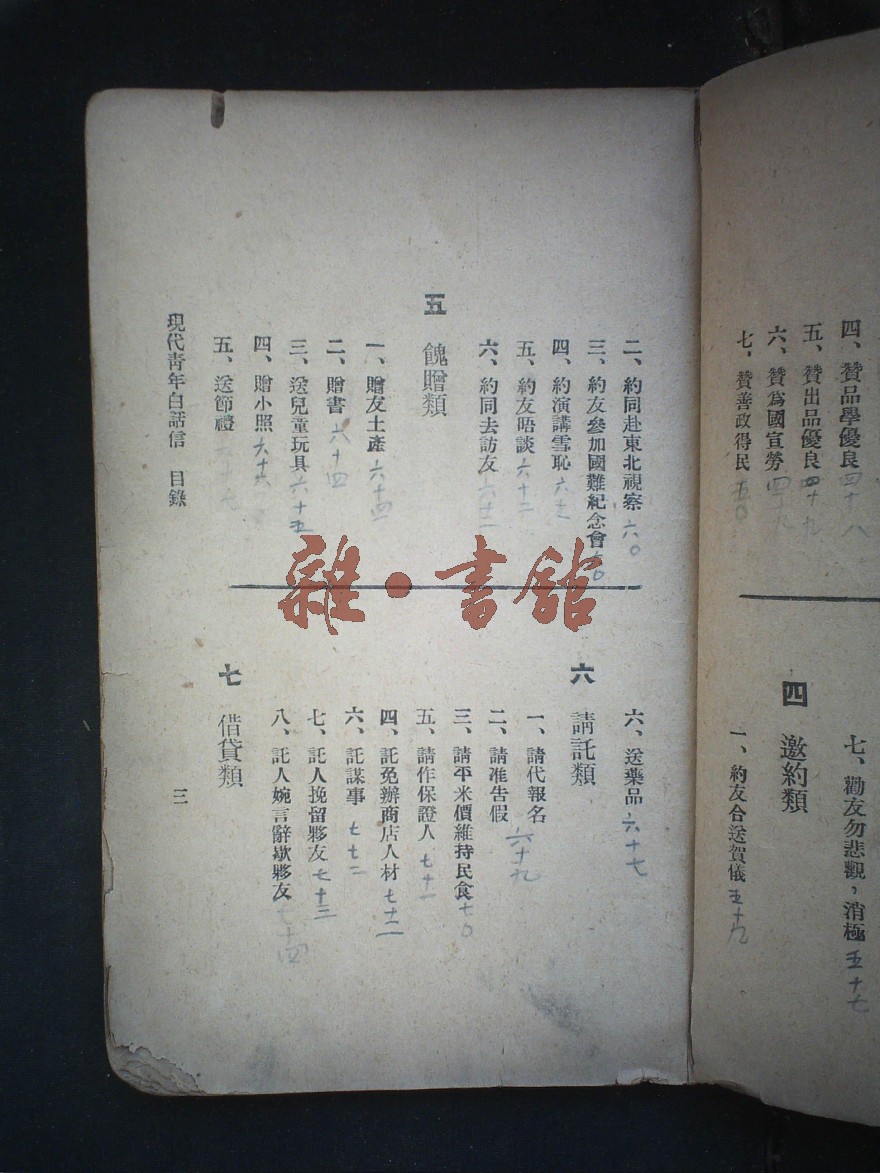 四、贊品學優良 四十八
五、贊出品優良 四十九
六、贊爲國宣勞 四十九
七、贊善政得民 五〇
七、勸友勿悲觀，消極 五十七
四 邀約類
一、約友合送賀儀 五十九
二、約同赴東北視察 六〇
三、約友參加國難紀念會 六〇
四、約演講雪恥
五、約友晤談 六十二
六、約同去訪友 六十二
五 餽贈類
一、贈友土產 六十四
二、贈書 六十四
三、送兒童玩具 六十五
四、贈小照 六十六
五、送節禮
六、送藥品 六十七
六 請託類
一、請代報名 六十九
二、請准告假
三、請平米價維持民食 七〇
五、請作保證人 七十一
四、託免辦商店人材 七十二
六、託謀事 七七二
七、託人挽留夥友 七十三
八、託人婉言辭歇夥友 七十四
七 借貸類
現代靑年白話信 目錄
三
雜·書館